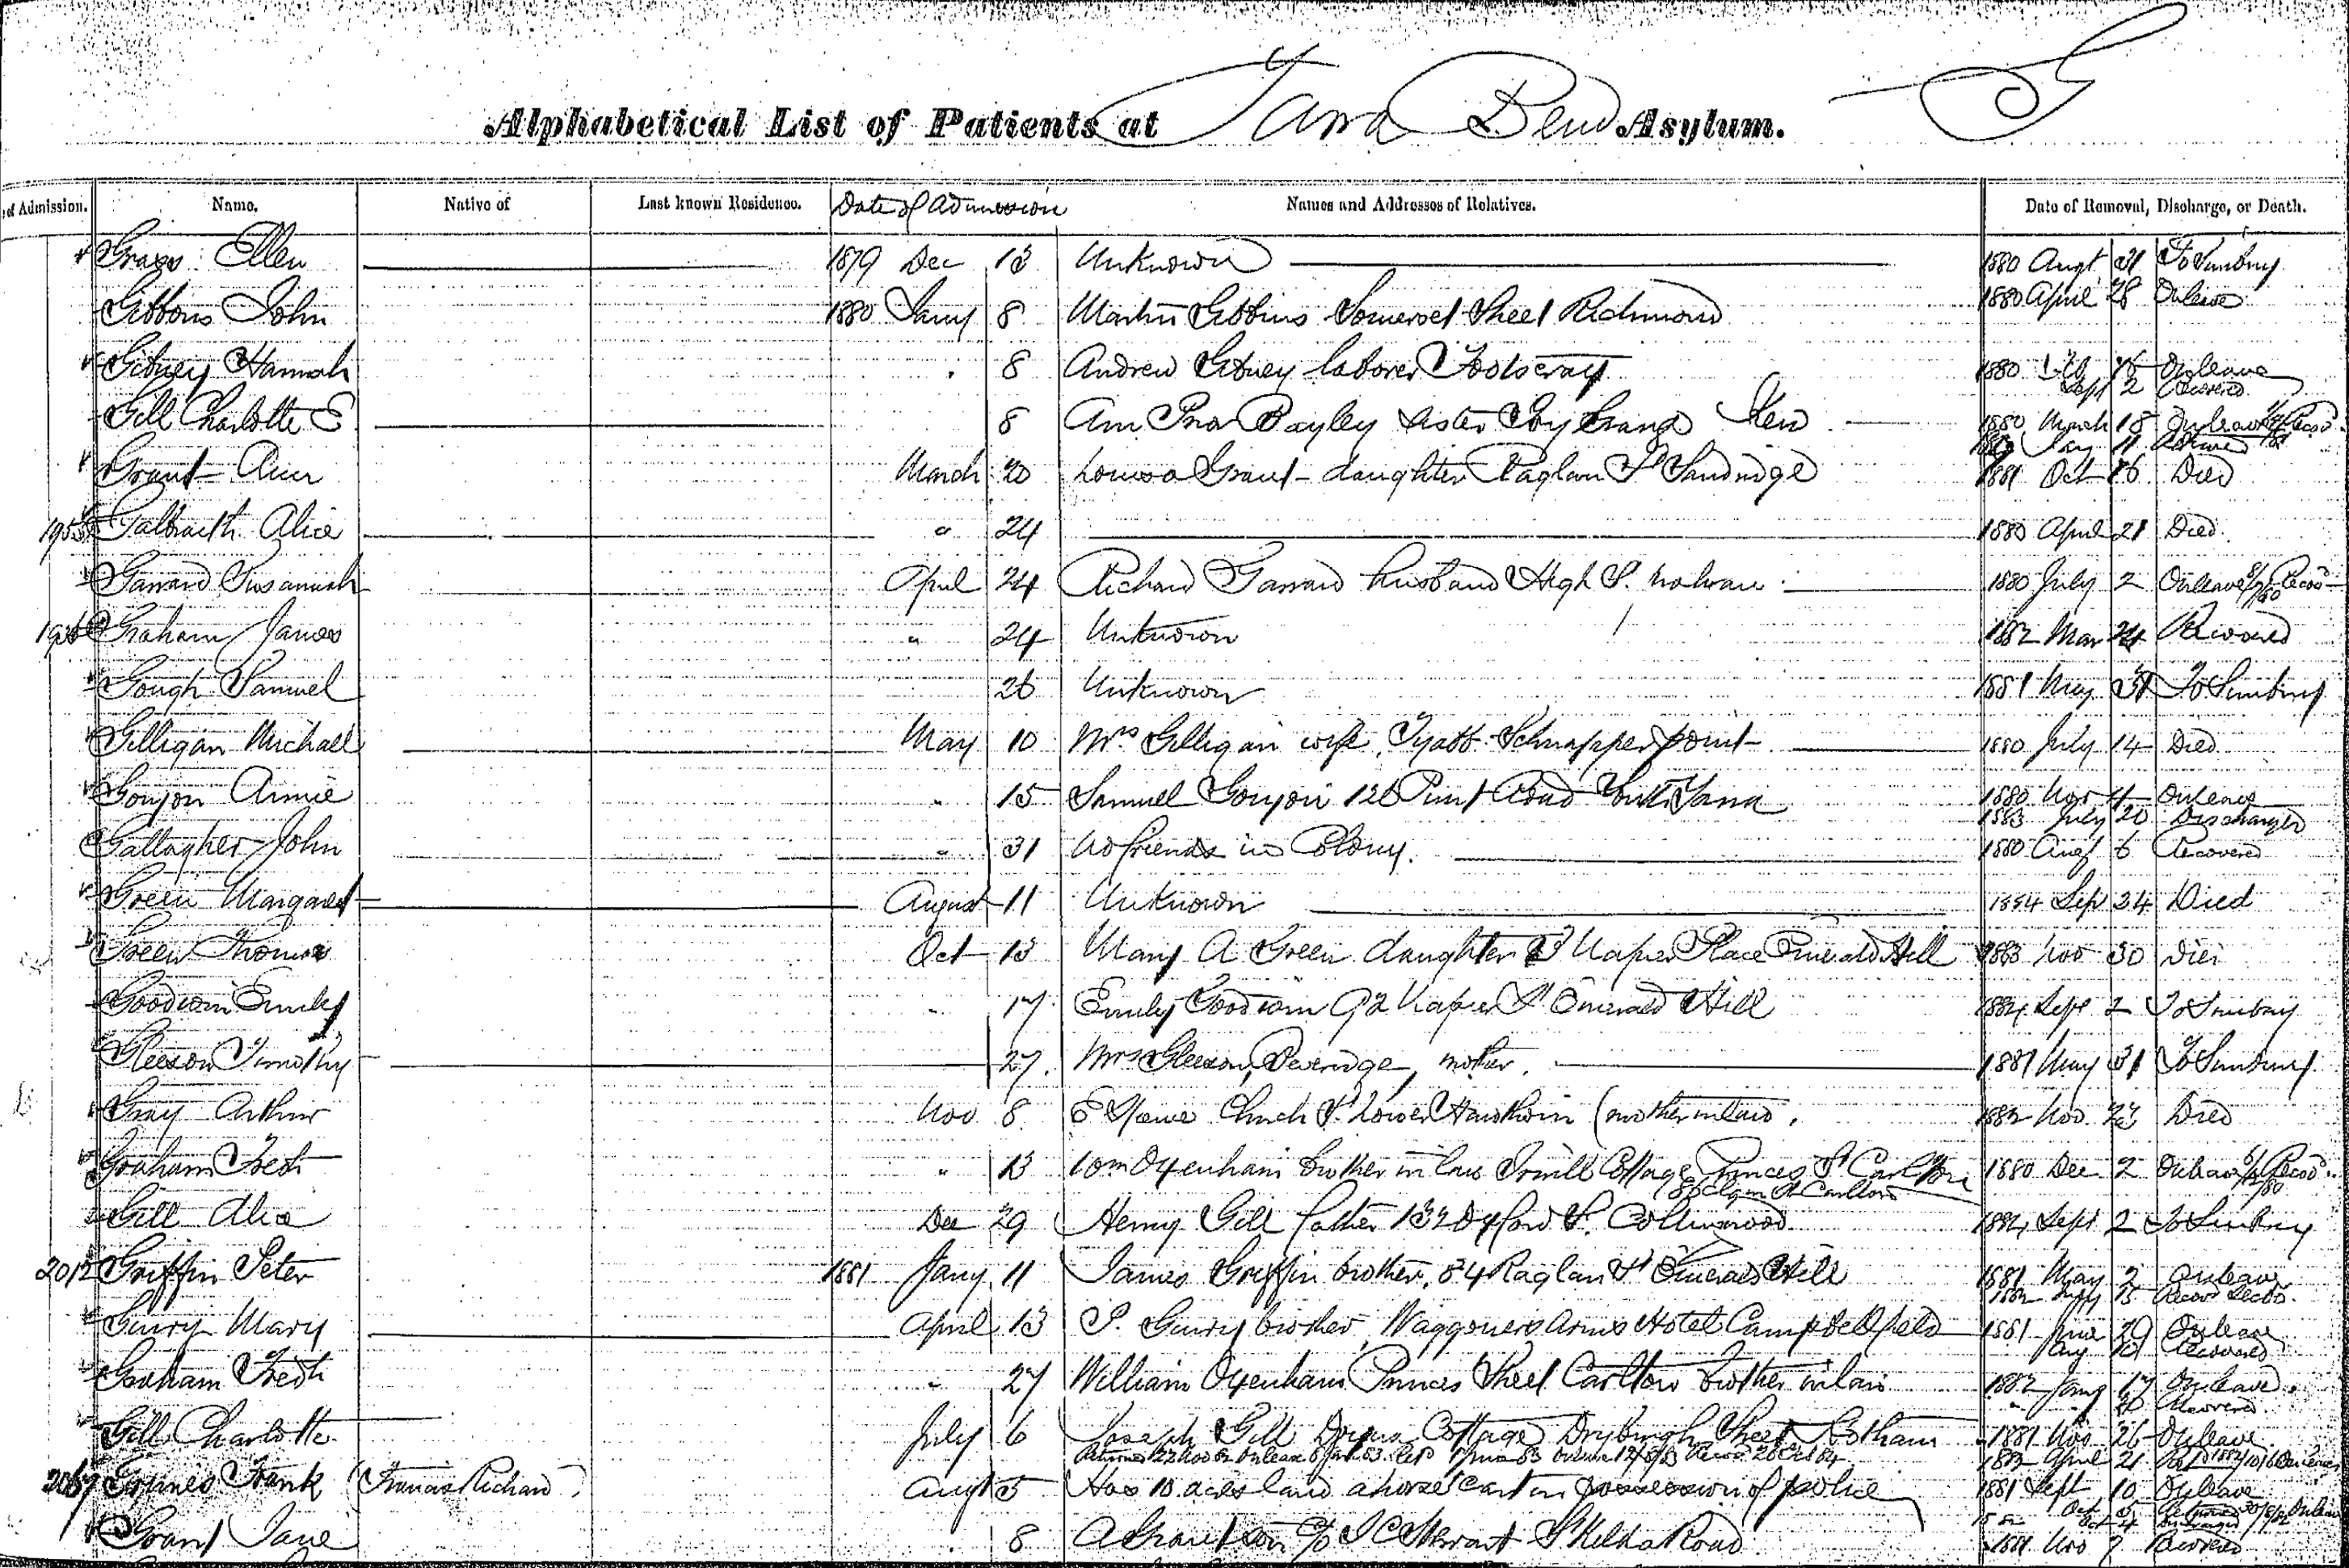 G
Alphabetical List of Patients at Yarra Bend Asylum.
of Admission. Name. Native of Last known Residence. Date of Admission Names and Addresses of Relatives. Date of Removal, Discharge, or Death.
Ellen 1879 Dec 13 Unknown 1880 Augt 31 To Sunbury
Gibbons John 1880 Jany 8 Martin Gibbins Somerset Street Richmond 1880 April 28 On leave
Gibney Hannah 8 Andrew Gibney laborer Footscray 1880 On leave
Sept 2 Recovered
Gill Charlotte E 8 Bayley sister Ivy Grange Kew 1880 March 18 On leave
Grant Ann March 20 Louisa Grant daughter Raglan St Sandridge 1881 Oct 16 Died
Galbraith Alice " 24 1880 April 21 Died
Garrard Susannah April 24 Richard Garrard husband High St. Malvern 1880 July 2 On leave
Graham James " 24 Unknown 1882 Mar 24 Recovered
Gough Samuel 26 Unknown 1881 May 31 To Sunbury
Gilligan Michael May 10 Mrs Gilligan wife, Tyabb Schnapper point 1880 July 14 Died
Goujon Annie " 15 Samuel Goujon 126 Punt Road South Yarra 1880 Nov 4 On leave
1883 July 20 Discharged
Gallagher John " 31 No friends in Colony. 1880 Aug 6 Recovered
Green Margaret August 11 Unknown Sep 24 Died
Green Thomas Oct 13 Mary A Green daughter Napier Place Emerald Hill 1883 Nov 30 Died
Goodwin Emily " 17 Emily Goodwin 92 Napier St Emerald Hill 1884 Sept 2 To Sunbury
Gleeson Timothy 27. Mrs Gleeson, Beveridge, mother. 1881 May 31 To Sunbury
Gray Arthur Nov 8 Church St. Lower Hawthorn (mother in law. 1882 Nov Died
Graham Fredk " 13 Wm Oxenham brother in law Cottage Princes St Carlton 1880 Dec 2 On leave
Elgin St Carlton
Gill Alice Dec 29 Henry Gill father 132 Oxford St. Collingwood 1884 Sept 2 To Sunbury
2012 Griffin Peter 1881 Jany 11 James Griffin brother, 84 Raglan St Emerald Hill 1881 May 2 On leave
Gurry Mary April 13 P. Gurry brother, Waggoners Arms Hotel Campbellfield 1881 June 29 On leave
Recovered
Graham Fredk " 27 William Oxenham Princes Street Carlton brother in law 1882 Jany On leave
Recovered
Gill Charlotte July 6 Joseph Gill Cottage Dryburgh Street Hotham 1881 Nov 26 On leave
April 21
2067 Frank (Francis Richard) Augt 5 Has 10 acres land a horse & cart in possession of police 1881 Sept 10 On leave
Grant Jane 8 A Grant son St Kilda Road 1881 Nov 7 Recovered